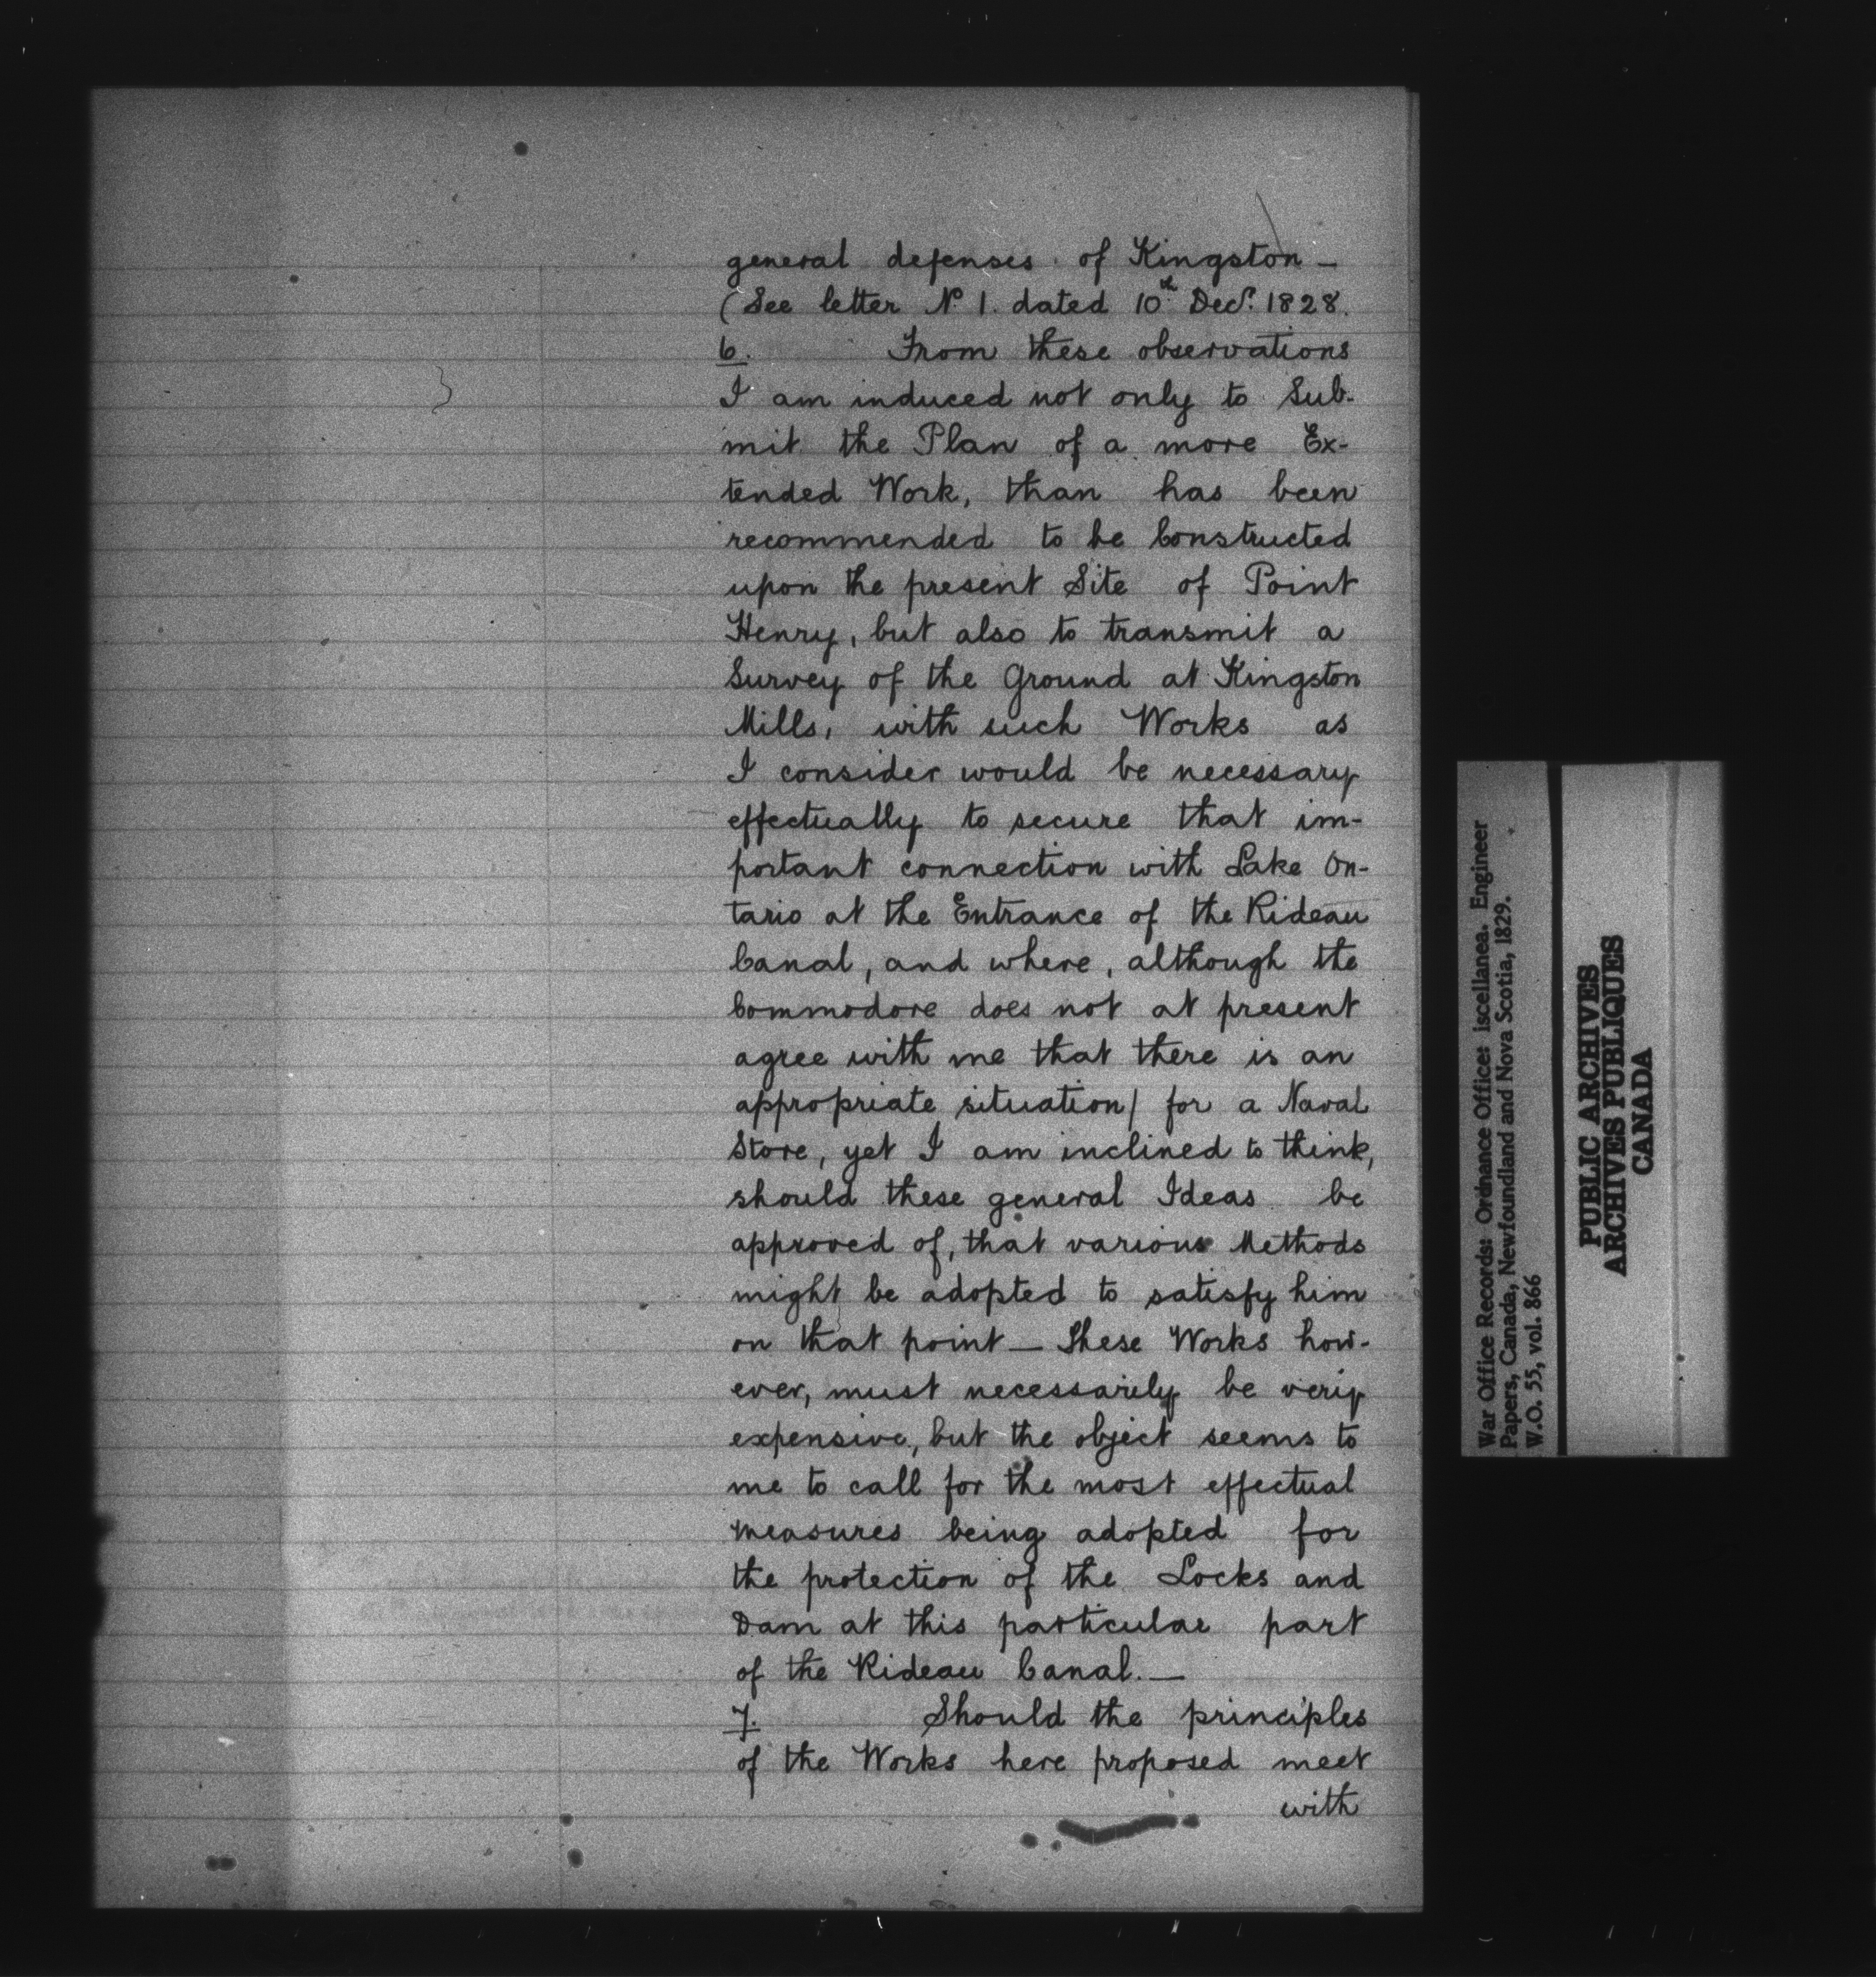 general defenses of Kingston —
(See letter No. 1. dated 10th Decr. 1828.
6. From these observations
I am induced not only to Sub-
mit the Plan of a more Ex-
tended Work, than has been
recommended to be Constructed
upon the present Site of Point
Henry, but also to transmit a
Survey of the Ground at Kingston
Mills, with such Works as
I consider would be necessary
effectually to secure that im-
portant connection with Lake On-
tario at the Entrance of the Rideau
Canal, and where, although the
Commodore does not at present
agree with me that there is an
appropriate situation) for a Naval
Store, yet I am inclined to think,
should these general Ideas be
approved of, that various Methods
might be adopted to satisfy him
on that point — These Works how-
ever, must necessarily be very
expensive, but the object seems to
me to call for the most effectual
measures being adopted for
the protection of the Locks and
Dam at this particular part
of the Rideau Canal. —
7. Should the principles
of the Works here proposed meet
with
War Office Records: Ordnance Office: iscellanea. Engineer
Papers, Canada, Newfoundland and Nova Scotia, 1829.
W.O. 55, vol. 866
PUBLIC ARCHIVES
ARCHIVES PUBLIQUES
CANADA